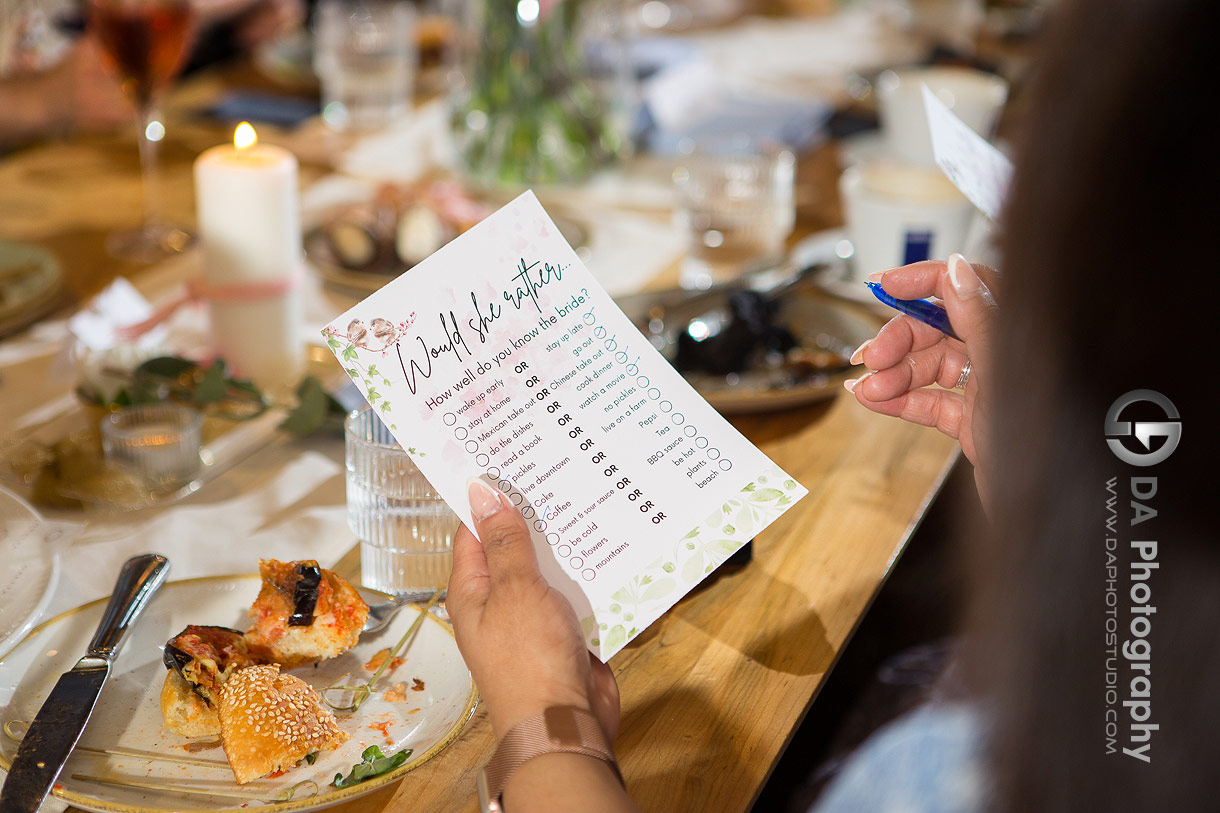 Would she rather...
How well do you know the bride?
wake up early OR stay up late
stay at home OR go out
Mexican take out OR Chinese take out
do the dishes OR cook dinner
read a book OR watch a movie
pickles OR no pickles
live downtown OR live on a farm
Coke OR Pepsi
Coffee OR Tea
Sweet & sour sauce OR BBQ sauce
be cold OR be hot
flowers OR plants
mountains OR beach
DA Photography
WWW.DAPHOTOSTUDIO.COM